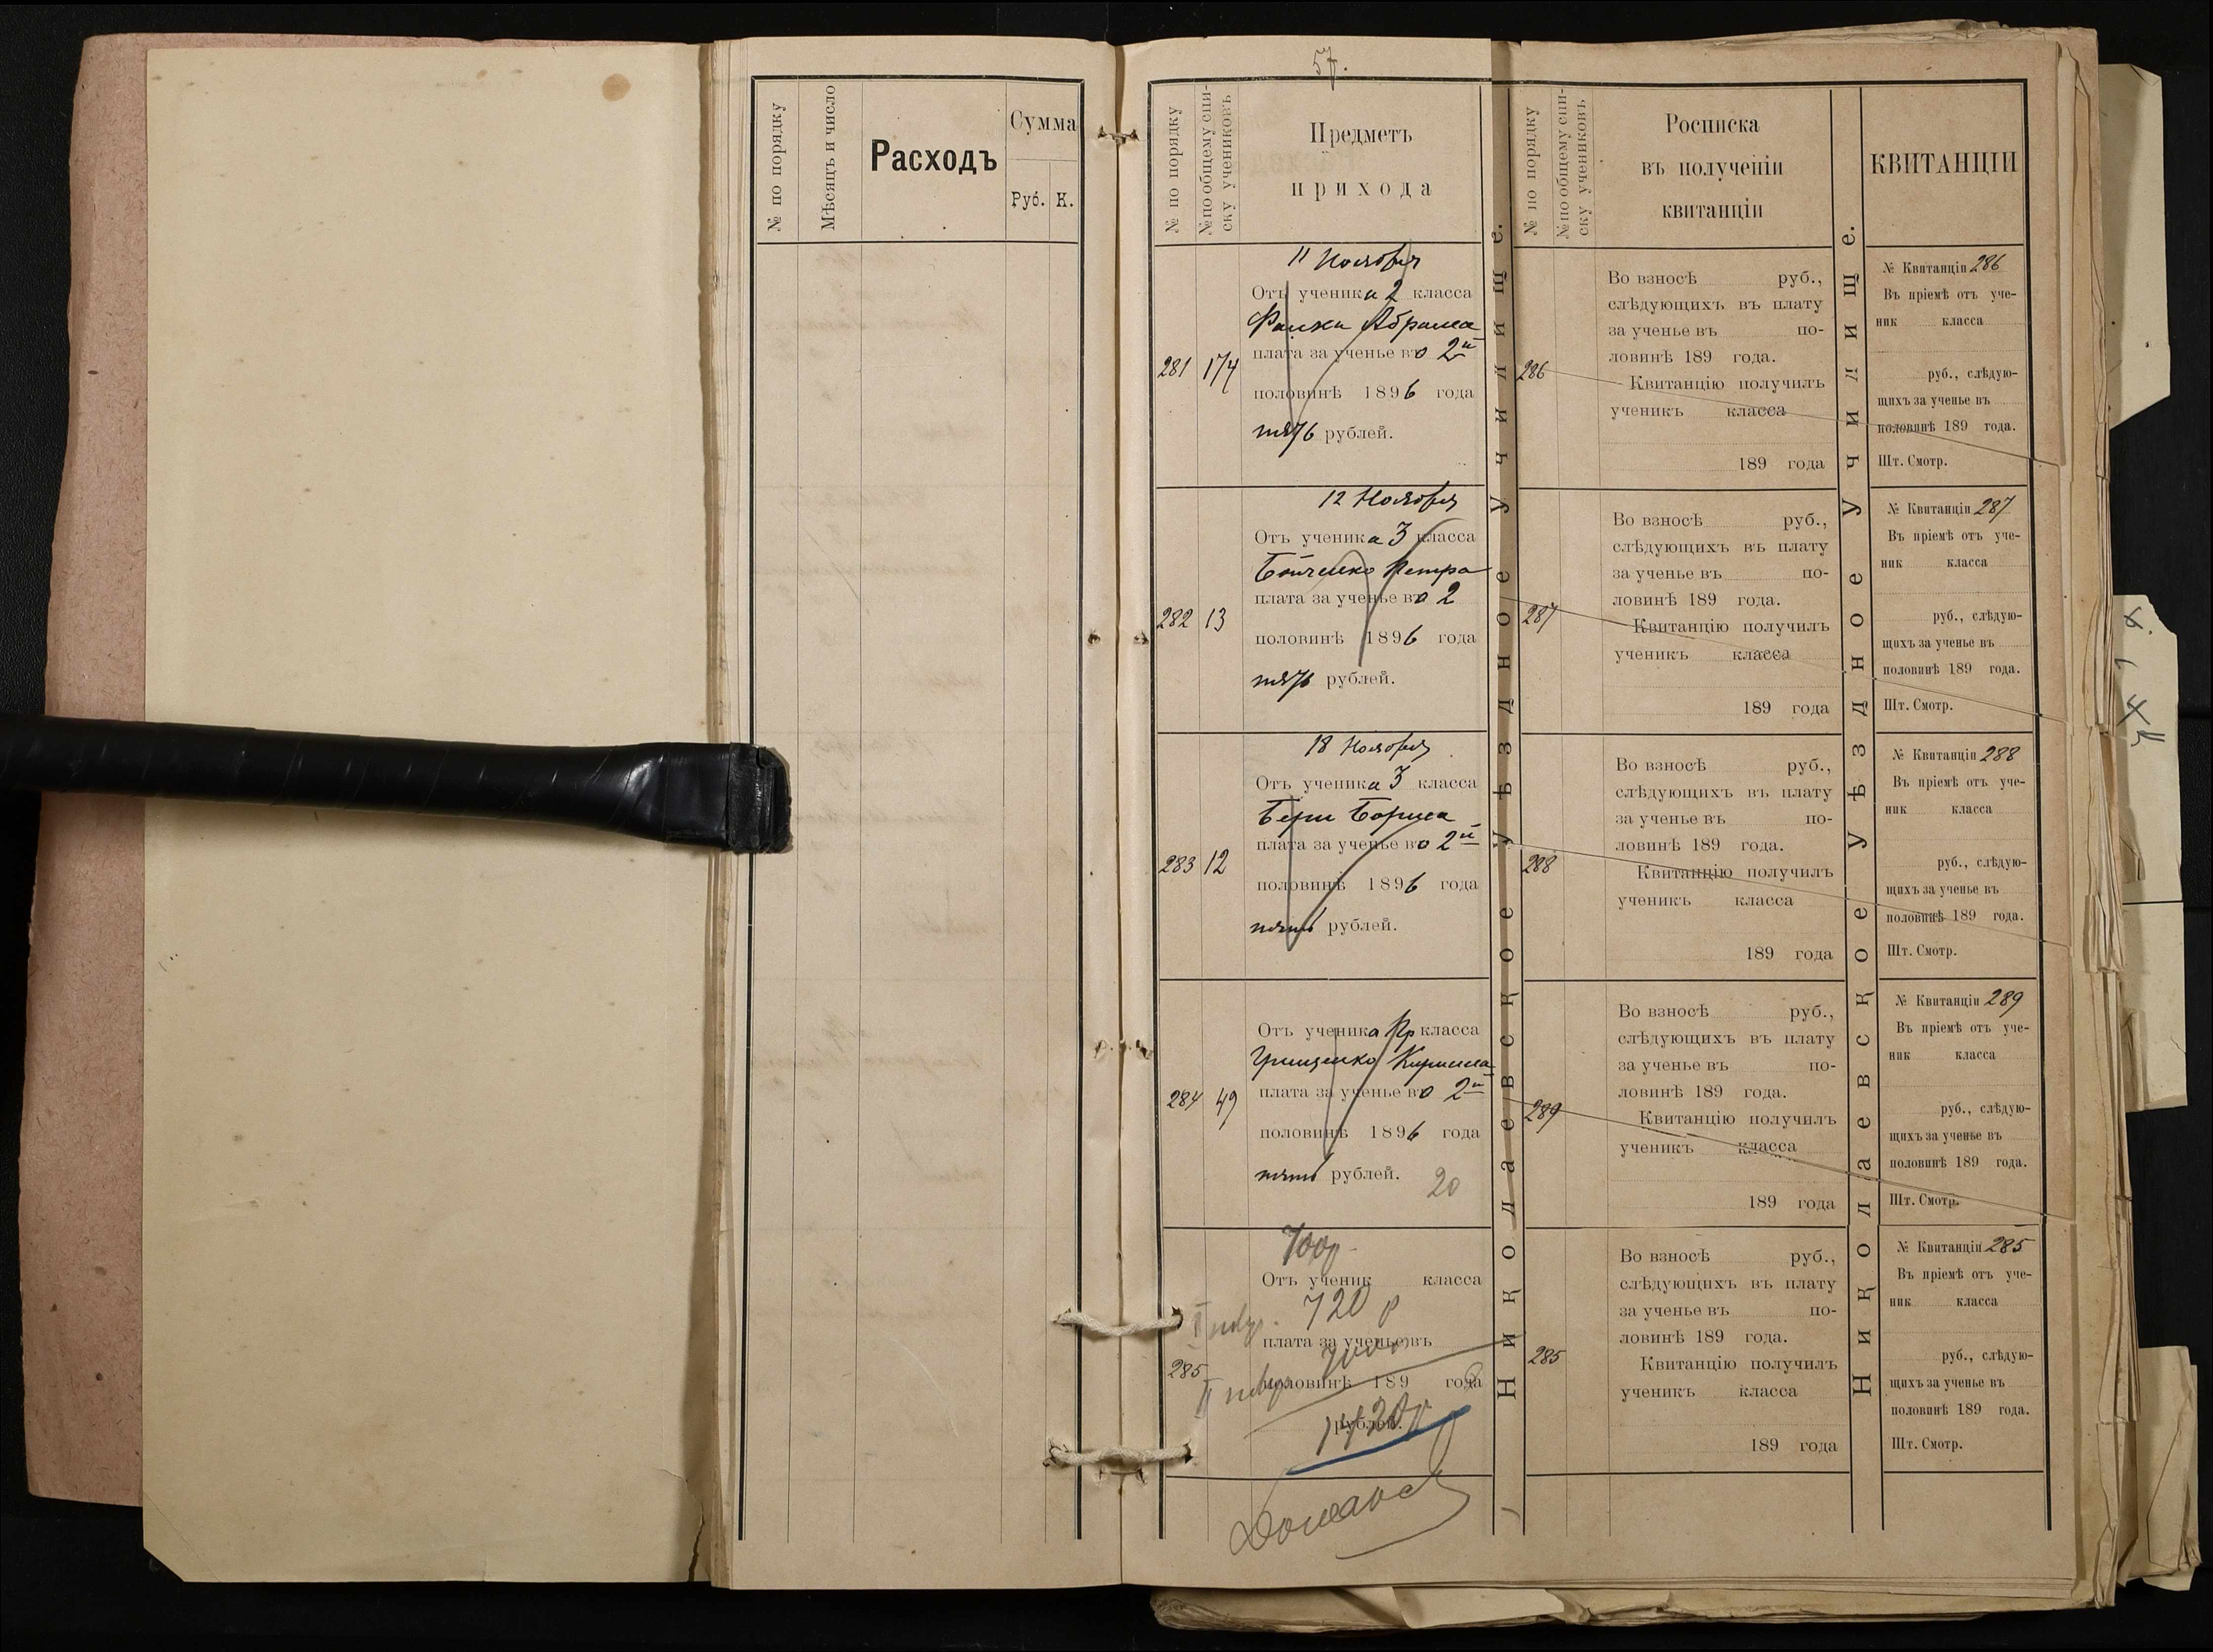 № по порядку
Мѣсяцъ и число
Расходъ
Сумма
Руб. К.
57.
№ по порядку
№ по общему спи-
ску учениковъ
Предметъ
прихода
11 Ноября
281 174
Отъ ученика 2 класса
Абрама
плата за ученье во 2й
половинѣ 1896 года
пять рублей.
12 Ноября
282 13
Отъ ученика 3 класса
Бойченко Петра
плата за ученье во 2
половинѣ 1896 года
пять рублей.
18 Ноября
283 12
Отъ ученика 3 класса
Бориса
плата за ученье во 2й
половинѣ 1896 года
пять рублей.
284 49
Отъ ученика Пр класса
Грищенко Кирилла
плата за ученье во 2й
половинѣ 1896 года
пять рублей.
20
700р
285
Отъ ученик класса
720 р
плата за ученье въ
700 р
половинѣ 189 года
рублей.
1420р
Николаевское Уѣздное Училище.
№ по порядку
№ по общему спи-
ску учениковъ
Росписка
въ полученіи
квитанціи
286
Во взносѣ руб.,
слѣдующихъ въ плату
за ученье въ по-
ловинѣ 189 года.
Квитанцію получилъ
ученикъ класса
189 года
287
Во взносѣ руб.,
слѣдующихъ въ плату
за ученье въ по-
ловинѣ 189 года.
Квитанцію получилъ
ученикъ класса
189 года
288
Во взносѣ руб.,
слѣдующихъ въ плату
за ученье въ по-
ловинѣ 189 года.
Квитанцію получилъ
ученикъ класса
189 года
289
Во взносѣ руб.,
слѣдующихъ въ плату
за ученье въ по-
ловинѣ 189 года.
Квитанцію получилъ
ученикъ класса
189 года
285
Во взносѣ руб.,
слѣдующихъ въ плату
за ученье въ по-
ловинѣ 189 года.
Квитанцію получилъ
ученикъ класса
189 года
Николаевское Уѣздное Училище.
КВИТАНЦІИ
№ Квитанціи 286
Въ пріемѣ отъ уче-
ник класса
руб., слѣдую-
щихъ за ученье въ
половинѣ 189 года.
Шт. Смотр.
№ Квитанціи 287
Въ пріемѣ отъ уче-
ник класса
руб., слѣдую-
щихъ за ученье въ
половинѣ 189 года.
Шт. Смотр.
№ Квитанціи 288
Въ пріемѣ отъ уче-
ник класса
руб., слѣдую-
щихъ за ученье въ
половинѣ 189 года.
Шт. Смотр.
№ Квитанціи 289
Въ пріемѣ отъ уче-
ник класса
руб., слѣдую-
щихъ за ученье въ
половинѣ 189 года.
Шт. Смотр.
№ Квитанціи 285
Въ пріемѣ отъ уче-
ник класса
руб., слѣдую-
щихъ за ученье въ
половинѣ 189 года.
Шт. Смотр.